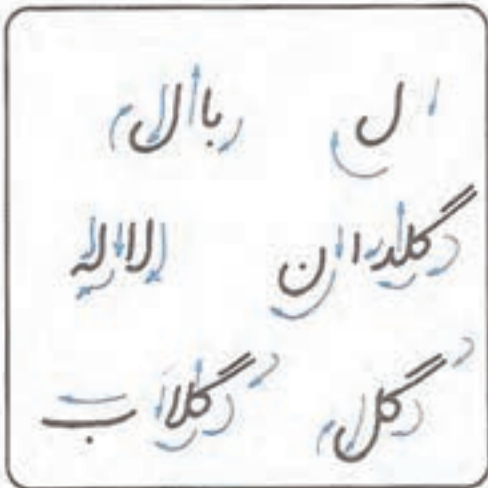 ل بال
گلدان لاله
گل گلاب